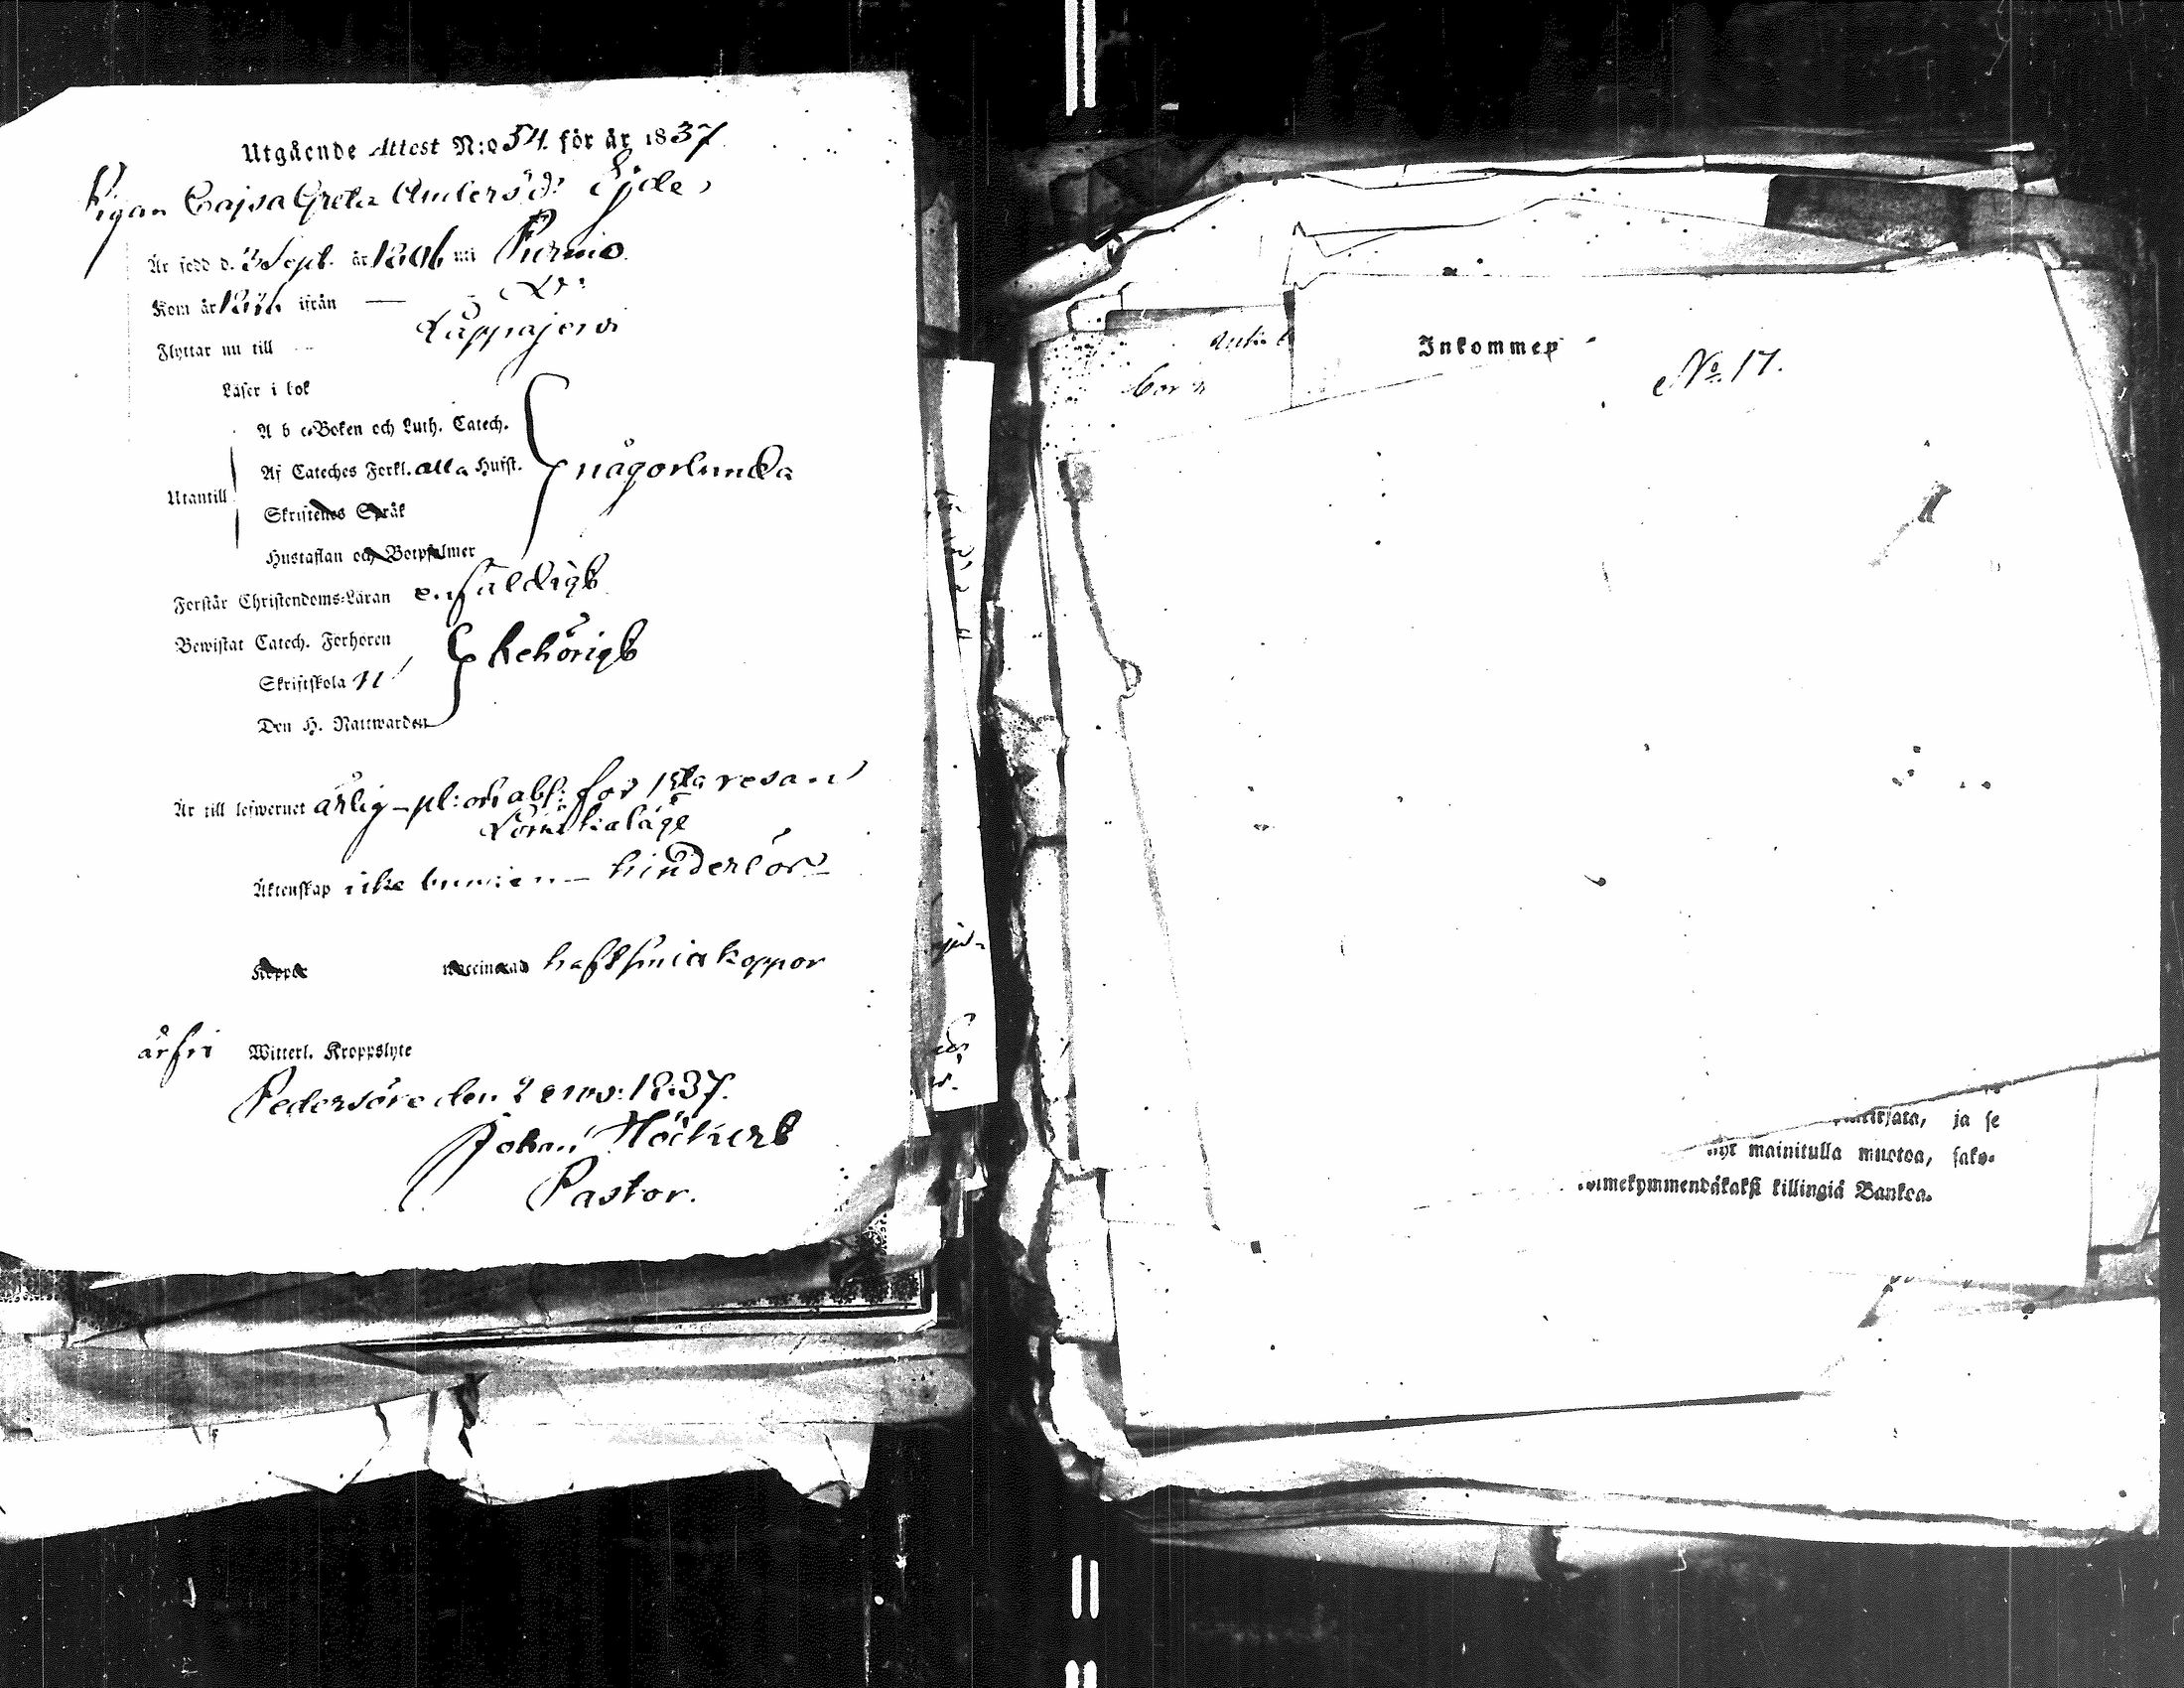 Utgående Attest N:o 54. för år 1837
Pigan Cajsa Greta Anders d:r Ejde,
Är född d. 3 Sept. år 1806 uti Purmo
Kom år 1836 ifrån — D:o
Flyttar nu till Lappajervi
Läser i bok
A b c-Boken och Luth. Catech.
Af Cateches Förkl. alla Hufst. någorlunda
Utantill
Skriftenes Språk
Hustaflan och Botpsalmer
Förstår Christendoms-Läran enfaldigt
Bewistat Catech. Förhören behörigt
Skriftskola
Den H. Nattwarden
Är till lefwernet ärlig – pl: och abs: för 1sta resan
Lönskaläge
Äktenskap icke bunden – hinderlös
Koppor vaccinerad haft smiakoppor
är fri Witterl. Kroppslyte
Pedersöre den 2 1837.
Johan Höckert
Pastor.
Inkommen
No. 17.
ja se
mainitulla muotoa, saks-
kymmendäkaksi killingiä Bankoa.